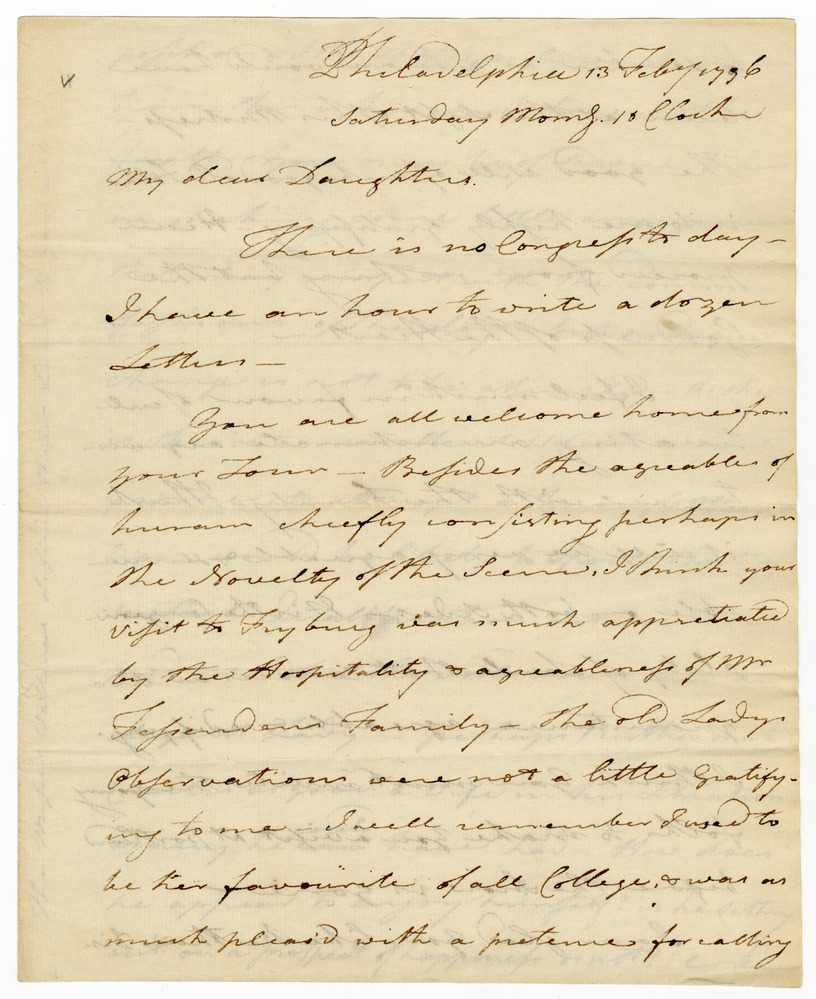 Philadelphia 13 Feby 1796
Saturday Morng. 10 Clock
My dear Daughters.
There is no Congress to day —
I have an hour to write a dozen
Letters —
You are all welcome home from
your Tour — Besides the agreables of
huram cheefly consisting perhaps in
the Novelty of the Scene, I think your
visit to Fryburg was much appretiated
by the Hospitality & agreableness of Mr
Fessendens Family — the old Ladys
Observations were not a little gratify-
ing to me — I well remember I used to
be her favourite of all College, & was as
much pleas'd with a pretence for calling